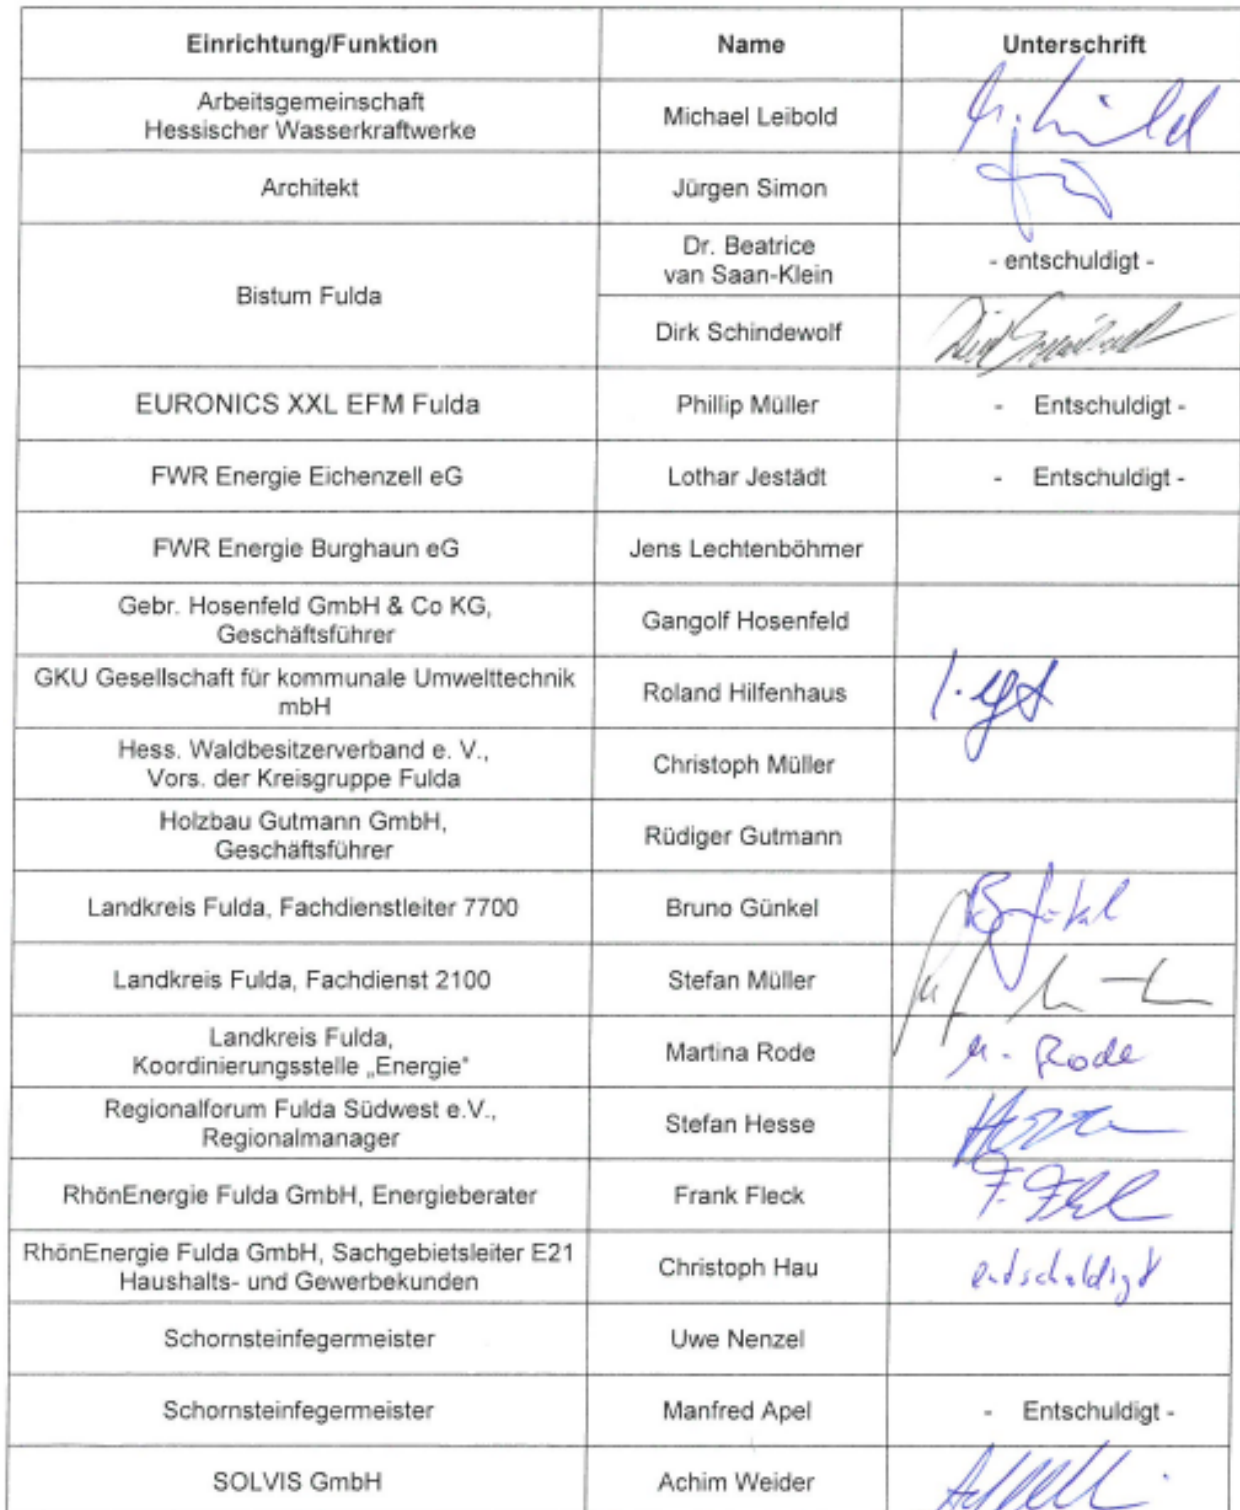 Einrichtung/Funktion Name Unterschrift
Arbeitsgemeinschaft
Hessischer Wasserkraftwerke Michael Leibold
Architekt Jürgen Simon
Bistum Fulda
Dr. Beatrice
van Saan-Klein - entschuldigt -
Dirk Schindewolf
EURONICS XXL EFM Fulda Phillip Müller - Entschuldigt -
FWR Energie Eichenzell eG Lothar Jestädt - Entschuldigt -
FWR Energie Burghaun eG Jens Lechtenböhmer
Gebr. Hosenfeld GmbH & Co KG,
Geschäftsführer Gangolf Hosenfeld
GKU Gesellschaft für kommunale Umwelttechnik
mbH Roland Hilfenhaus
Hess. Waldbesitzerverband e. V.,
Vors. der Kreisgruppe Fulda Christoph Müller
Holzbau Gutmann GmbH,
Geschäftsführer Rüdiger Gutmann
Landkreis Fulda, Fachdienstleiter 7700 Bruno Günkel
Landkreis Fulda, Fachdienst 2100 Stefan Müller
Landkreis Fulda,
Koordinierungsstelle „Energie“ Martina Rode M. Rode
Regionalforum Fulda Südwest e.V.,
Regionalmanager Stefan Hesse
RhönEnergie Fulda GmbH, Energieberater Frank Fleck
RhönEnergie Fulda GmbH, Sachgebietsleiter E21
Haushalts- und Gewerbekunden Christoph Hau entschuldigt
Schornsteinfegermeister Uwe Nenzel
Schornsteinfegermeister Manfred Apel - Entschuldigt -
SOLVIS GmbH Achim Weider